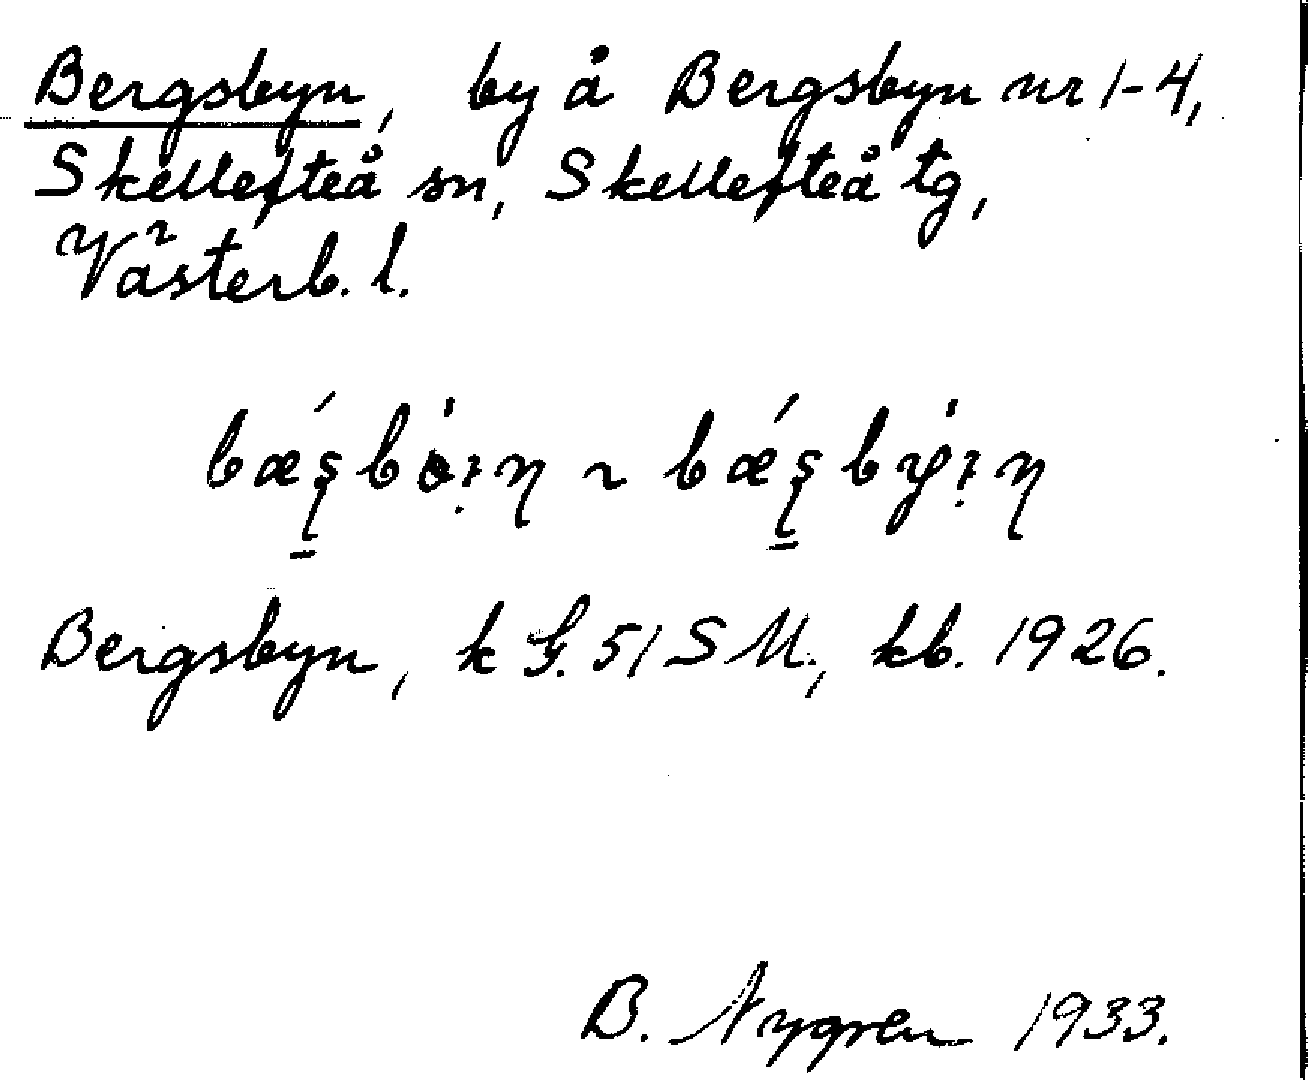 Bergsbyn, by å Bergsbyn nr 1-4,
Skellefteå sn, Skellefteå tg,
Västerb. l.
Bergsbyn, k G. 51 S M., kb. 1926.
B. Nygren 1933.